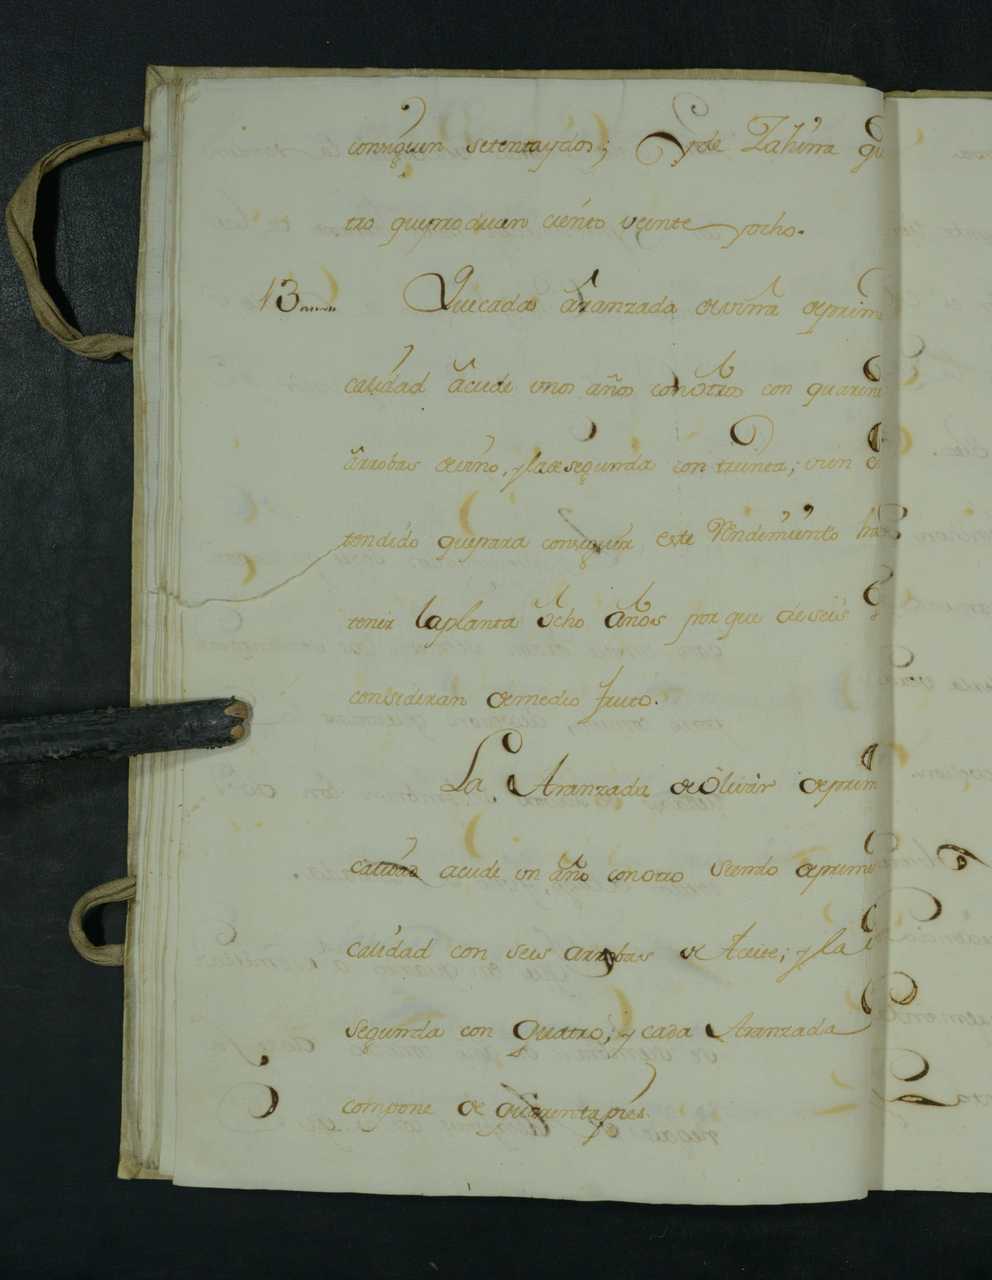 consiguen setentaydos; Y de Zahina qu
tro queproducen ciento veinte yocho.
13 Quecada aranzada deviña deprim
calidad âcude unos años conotros con quaren
ârrobas devino, y lade segunda con treinta; vien
tendido quepara conseguir este Rendimiento ha
tener laplanta ocho años por que de seis
consideran demedio fruto.
La Aranzada de Olivar deprim
calidad acude un año conotro siendo deprime
calidad con seis arrobas de Aceite; y la
segunda con quatro; y cada Aranzada
compone de quarenta pies.